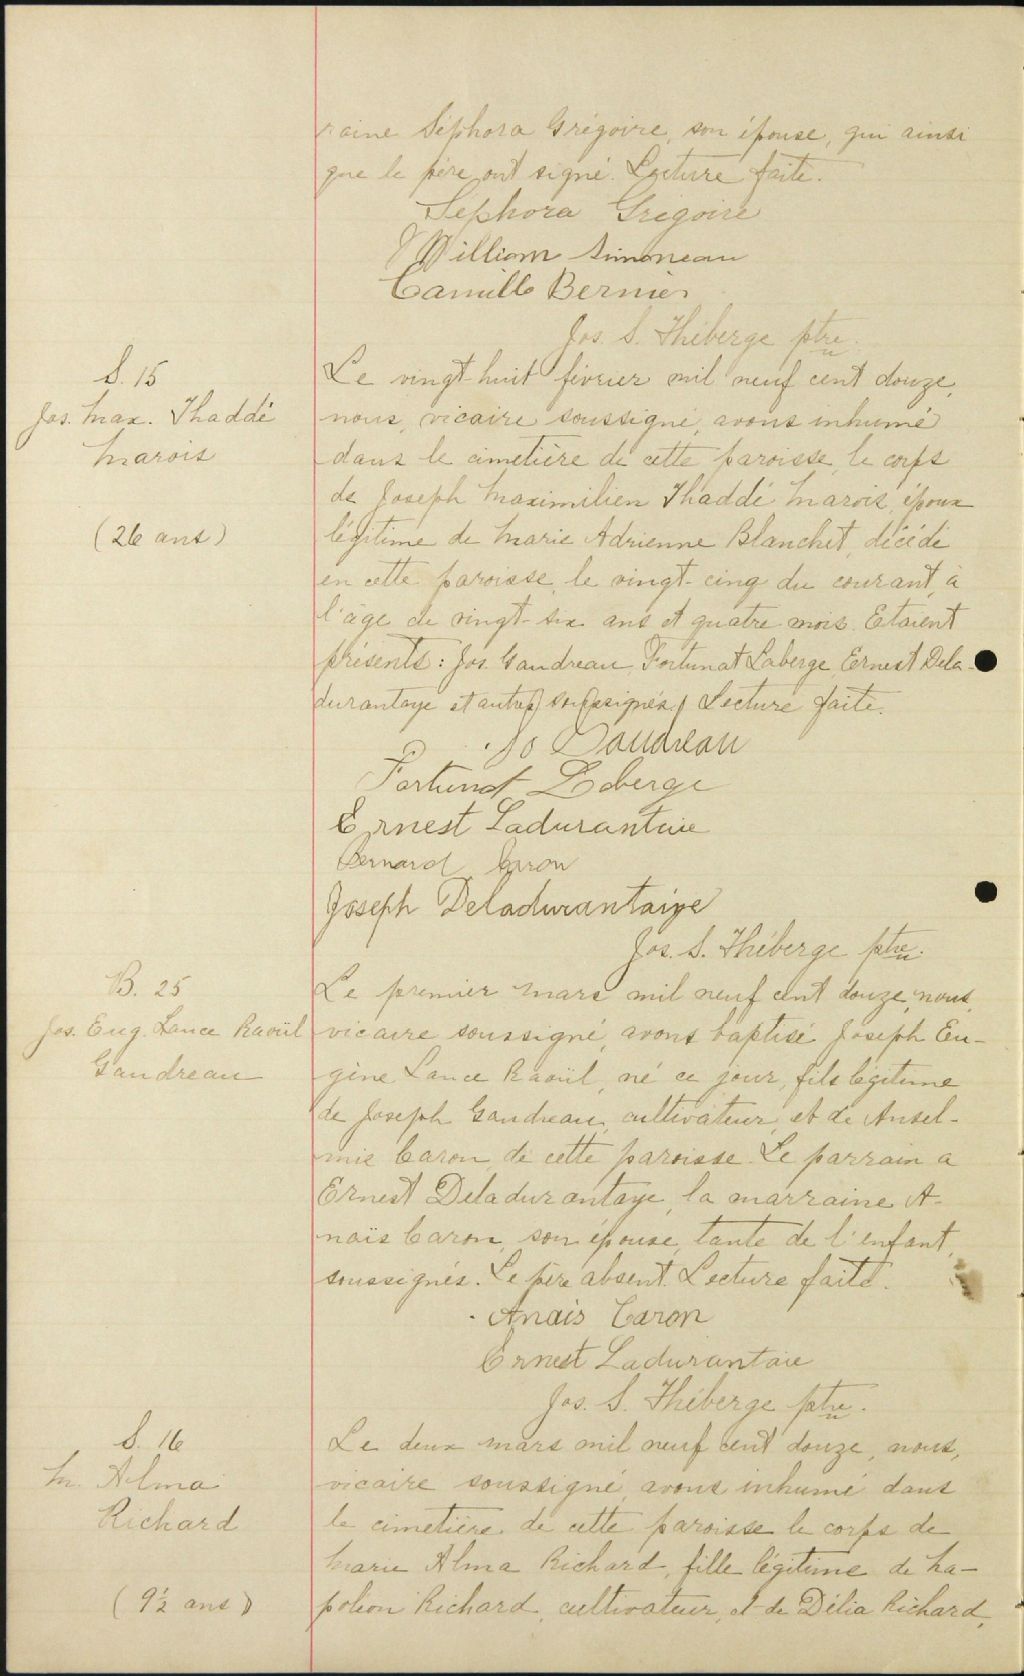 raine Séphora Grégoire, son épouse, qui ainsi
que le père ont signé. Lecture faite.
Sephora Grégoire
William Simoneau
Camille Bernier
Jos. S. Théberge ptre.
S. 15
Jos. Max. Thaddé
Marois
(26 ans)
Le vingt-huit février mil neuf cent douze,
nous, vicaire soussigné, avons inhumé
dans le cimetière de cette paroisse, le corps
de Joseph Maximilien Thaddé Marois, époux
légitime de Marie Adrienne Blanchet, décédé
en cette paroisse, le vingt-cinq du courant, à
l'âge de vingt-six ans et quatre mois. Etaient
présents: Jos. Gaudreau, Fortunat Laberge, Ernest Dela-
durantaye et autres soussignés. Lecture faite.
Jo Gaudreau
Fortunat Laberge
Ernest Ladurantaie
Bernard Caron
Joseph Deladurantaiye
Jos. S. Théberge ptre.
B. 25
Jos. Eug. Lance Raoüil
Gaudreau
Le premier mars mil neuf cent douze, nous,
vicaire soussigné, avons baptisé Joseph Eu-
gène Lance Raoüil, né ce jour, fils légitime
de Joseph Gaudreau, cultivateur, et de Ansel-
mie Caron, de cette paroisse. Le parrain a
Ernest Deladurantaye, la marraine A-
naïs Caron, son épouse, tante de l'enfant,
soussignés. Le père absent. Lecture faite.
Anais Caron
Ernest Ladurantaie
Jos. S. Théberge ptre.
S. 16
M. Alma
Richard
(9½ ans)
Le deux mars mil neuf cent douze, nous,
vicaire soussigné, avons inhumé dans
le cimetière de cette paroisse le corps de
Marie Alma Richard, fille légitime de Na-
poléon Richard, cultivateur, et de Délia Richard,